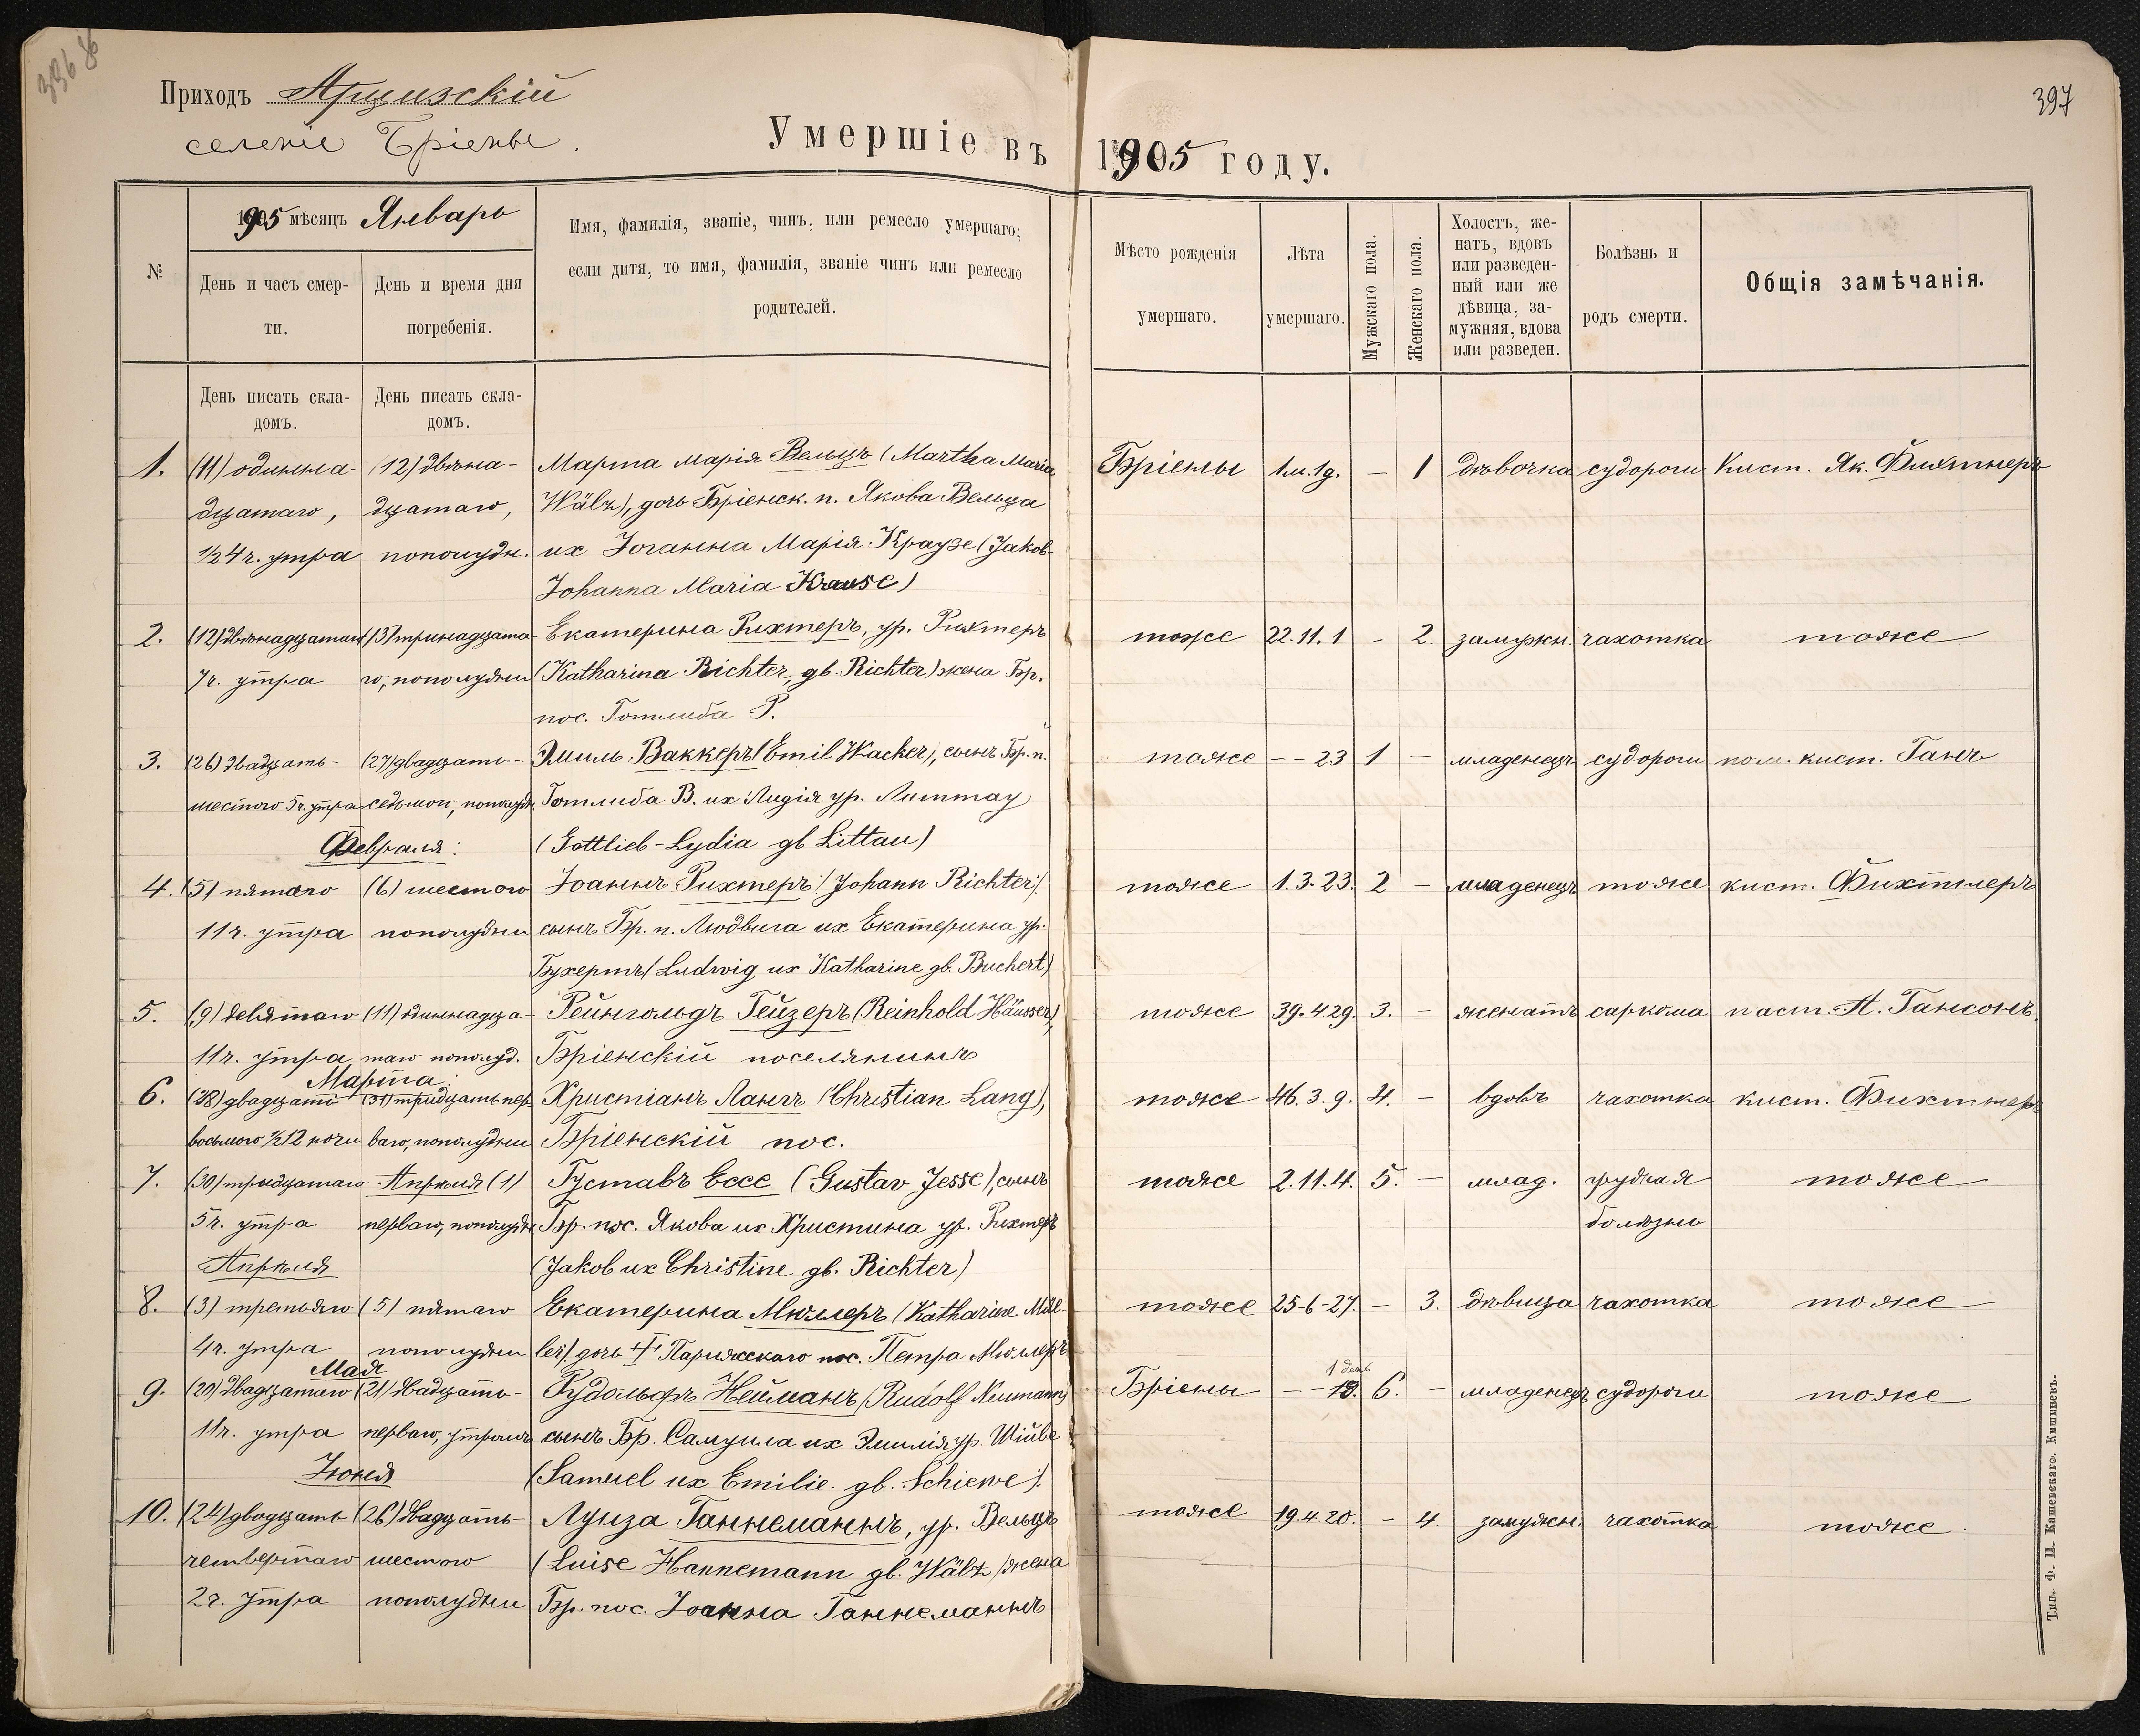 396 об
Приходъ Арцизскій
селеніе Бріены.
Умершіе въ 1905 году.
397
№
1905 мѣсяцъ Январь
День и часъ смер-
ти.
День и время дня
погребенія.
Имя, фамилія, званіе, чинъ, или ремесло умершаго;
если дитя, то имя, фамилія, званіе чинъ или ремесло
родителей.
Мѣсто рожденія
умершаго.
Лѣта
умершаго.
Мужскаго пола.
Женскаго пола.
Холостъ, же-
натъ, вдовъ
или разведен-
ный или же
дѣвица, за-
мужняя, вдова
или разведен.
Болѣзнь и
родъ смерти.
Общія замѣчанія.
День писать скла-
домъ.
День писать скла-
домъ.
1. (11) одинна- (12) двѣна- Марта Марія Вельцъ (Martha Maria Бріены 1м.1д. — 1 дѣвочка судороги Кист. Як. Фихтнеръ
дцатаго, дцатаго, Wälz), дочь Бріенск. п. Якова Вельца
1/2 4 ч. утра пополудн. их Іоганна Марія Краузе (Jakob-
Johanna Maria Krause)
2. (12) двѣнадцатаго (13) тринадцата- Екатерина Рихтеръ, ур. Рихтеръ тоже 22.11.1 - 2. замужн. чахотка тоже
7ч. утра го, пополудни (Katharina Richter, gb. Richter) жена Бр.
пос. Готлиба Р.
3. (26) двадцать- (27) двадцать- Эмиль Ваккеръ (Emil Wacker), сынъ Бр. п. тоже - - 23 1 — младенецъ судороги пом. кист. Ганъ
шестого 5ч. утра седьмого, пополудн. Готлиба В. их Лидія ур. Литтау
Февраля: (Gottlieb-Lydia gb Littau)
4. (5) пятаго (6) шестого Іоаннъ Рихтеръ (Johann Richter) тоже 1.3.23. 2 — младенецъ тоже кист. Фихтнеръ
11ч. утра пополудни сынъ Бр. п. Людвига их Екатерина ур.
Бухертъ (Ludwig их Katharine gb. Buchert)
5. (9) девятаго (11) одиннадца- Рейнгольдъ Гейзеръ (Reinhold Häusser), тоже 39.4.29. 3. — женатъ саркома паст. А. Гансонъ.
11ч. утра таго пополуд. Бріенскій поселянинъ
Марта:
6. (28) двадцать (31) тридцать пер- Христіанъ Лангъ (Christian Lang), тоже 46.3.9. 4. — вдовъ чахотка кист. Фихтнеръ
восьмого 1/2 12 ночи ваго, пополудни Бріенскій пос.
7. (30) тридцатаго Апрѣля (1) Густавъ Ессе (Gustav Jesse), сынъ тоже 2.11.4. 5. — млад. грудная тоже
5ч. утра перваго, пополудн. Бр. пос. Якова их Христина ур. Рихтеръ болѣзнь
Апрѣля (Jakob их Christine gb. Richter)
8. (3) третьяго (5) пятаго Екатерина Мюллеръ (Katharine Mül- тоже 25-6-27. — 3. дѣвица чахотка тоже
4ч. утра пополудни ler) дочь † Парижскаго пос. Петра Мюллеръ
Мая 1 день
9. (20) двадцатаго (21) двадцать- Рудольфъ Нейманъ (Rudolf Neumann) Бріены - - 6. — младенецъ судороги тоже
11ч. утра перваго, утромъ сынъ Бр. Самуила их Эмилія ур. Шиве
Іюня (Samuel их Emilie. gb. Schiewe).
10. (24) двадцать- (26) двадцать- Луиза Ганнеманнъ, ур. Вельцъ тоже 19.4.20. - 4. замужн. чахотка тоже.
четвертаго шестого (Luise Hannemann gb. Wälz) жена
2ч. утра пополудни Бр. пос. Іоанна Ганнеманнъ
Тип. Ф. П. Кашевскаго. Кишиневъ.